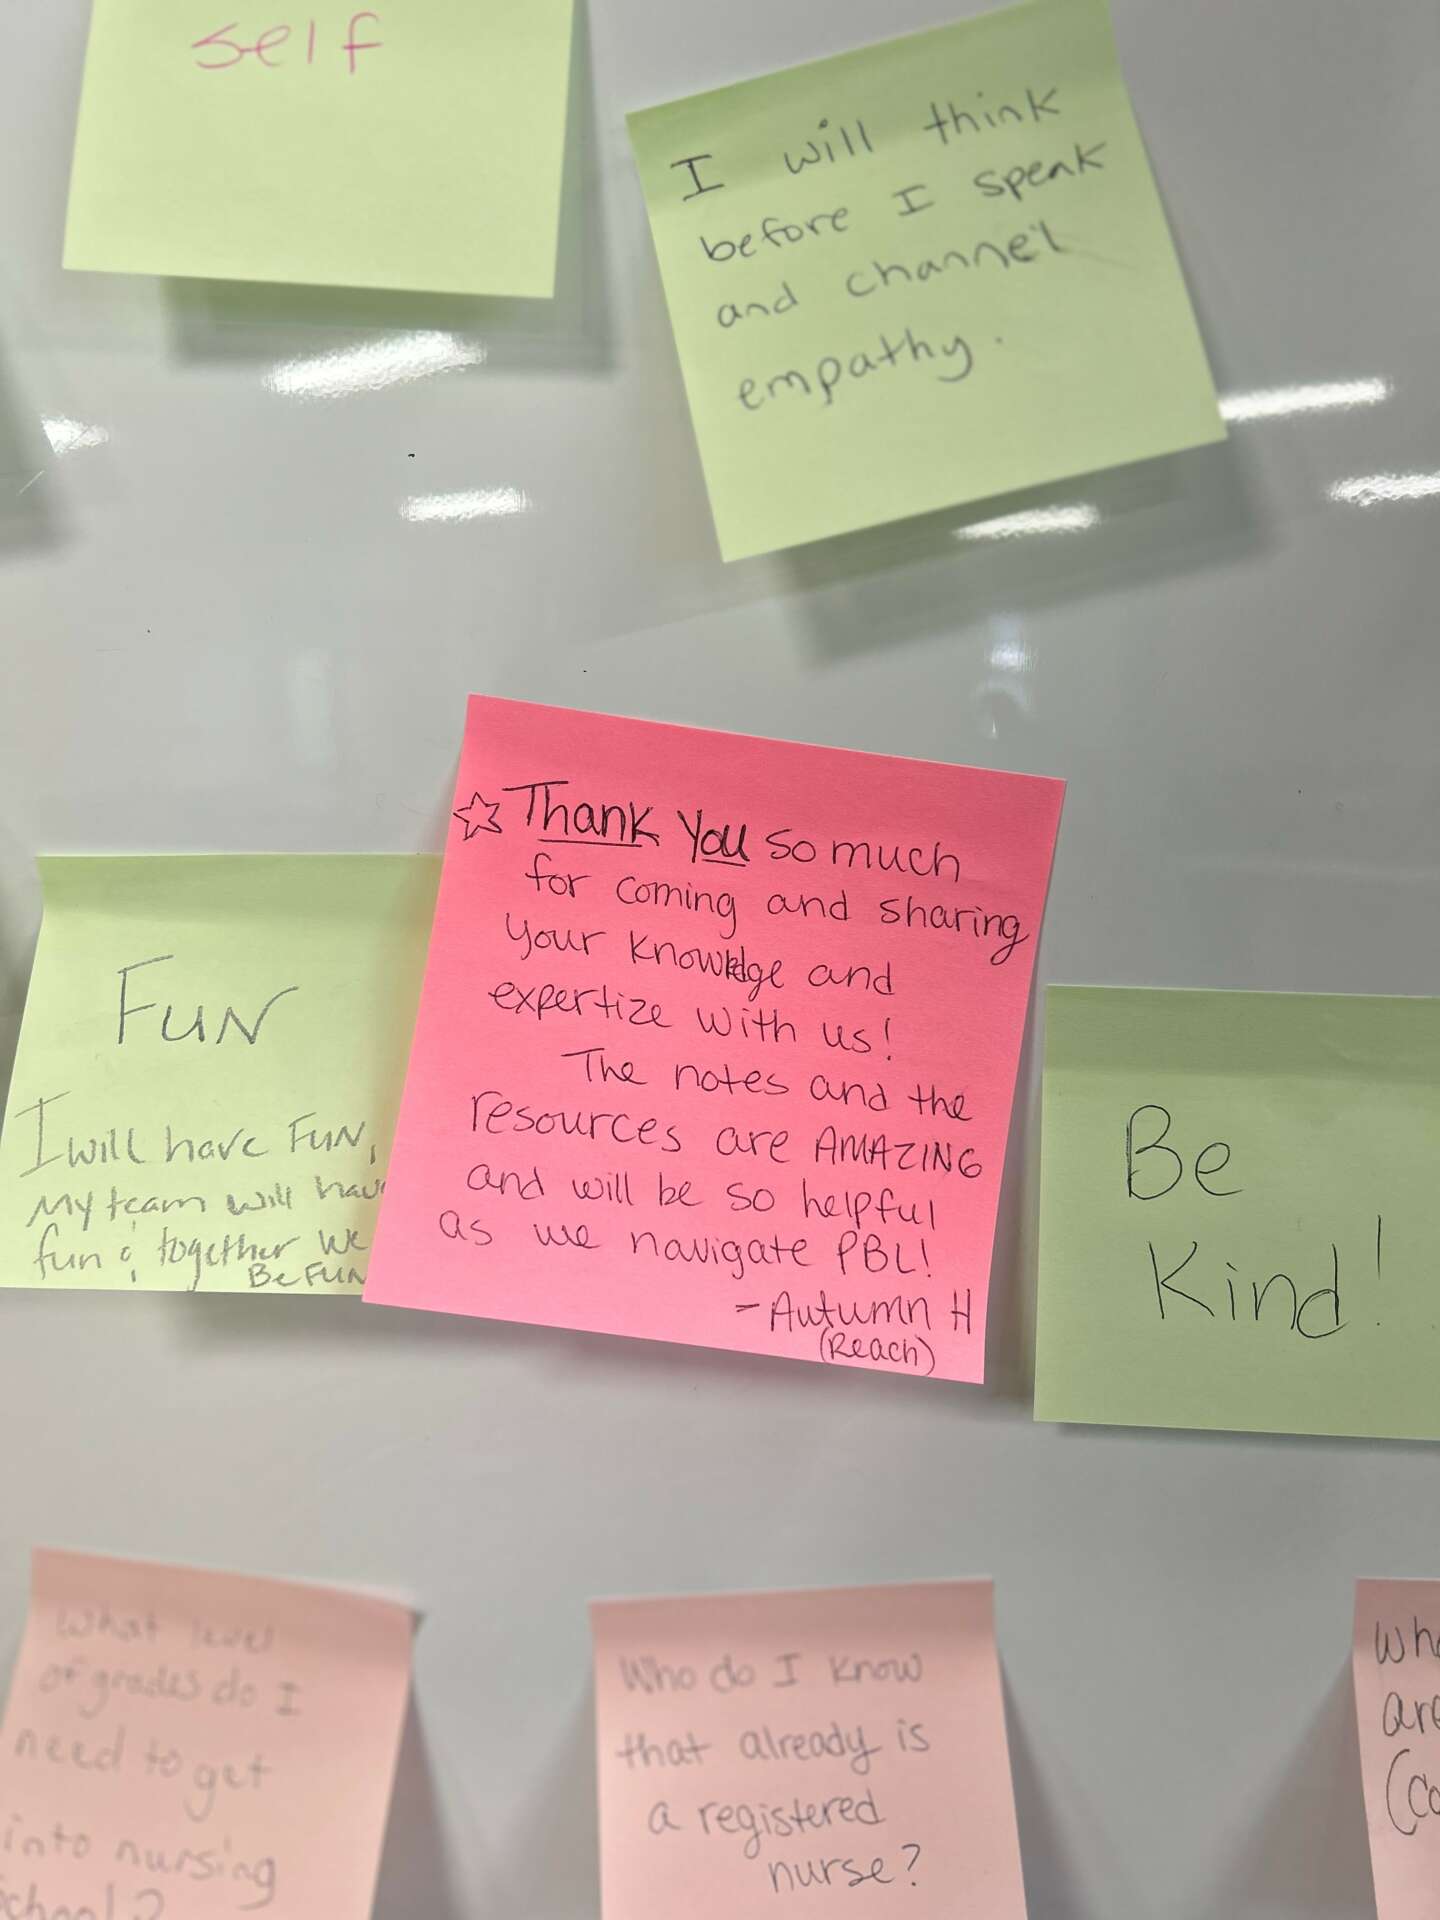 self
I will think
before I speak
and channel
empathy.
☆ Thank You so much
for coming and sharing
your knowledge and
expertize with us!
The notes and the
resources are AMAZING
and will be so helpful
as we navigate PBL!
- Autumn H
(Reach)
FUN
I will have FUN,
My team will have
fun & together we
Be FUN
Be
Kind!
What level
of grades do I
need to get
into nursing
school?
Who do I know
that already is
a registered
nurse?
are